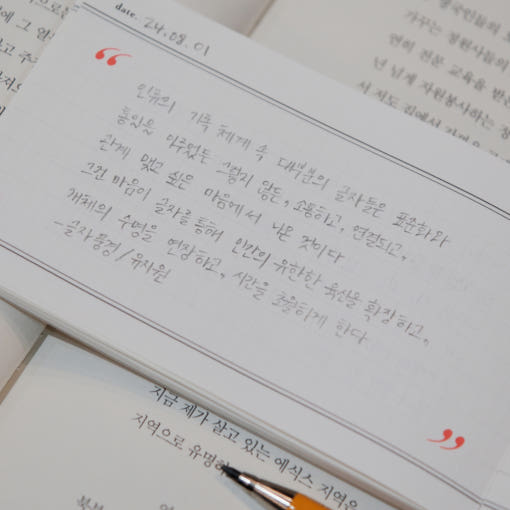 date. 24.08.01
인류의 기록 체계 속 대부분의 글자들은 표준화와
통일을 이루었든 그렇지 않든, 소통하고, 연결되고,
관계 맺고 싶은 마음에서 나온 것이다
그런 마음이 글자를 통해 인간의 유한한 육신을 확장하고,
개체의 수명을 연장하고, 시간을 초월하게 한다
- 글자 풍경 / 유지원
지금 제가 살고 있는 에식스 지역은
지역으로 유명하
가꾸는 정원사들의
면허 전문 교육을 받은
넌 넘게 자원봉사하는